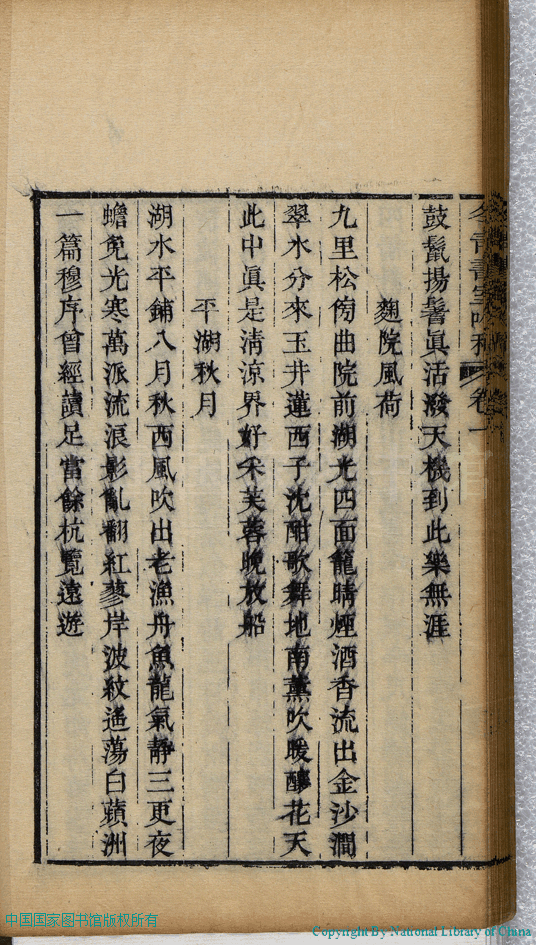 鼓鬣揚鬐眞活潑天機到此樂無涯
麯院風荷
九里松傍曲院前湖光四面籠晴煙酒香流出金沙澗
翠水分來玉井蓮西子沈酣歌舞地南薰吹暖醉花天
此中眞是清涼界好采芙蓉晚放船
平湖秋月
湖水平鋪八月秋西風吹出老漁舟魚龍氣靜三更夜
蟾兔光寒萬派流浪影亂翻紅蓼岸波紋遙蕩白蘋洲
一篇穆序曾經讀足當餘杭覽遠遊
卷一
中国国家图书馆版权所有
Copyright By National Library of China